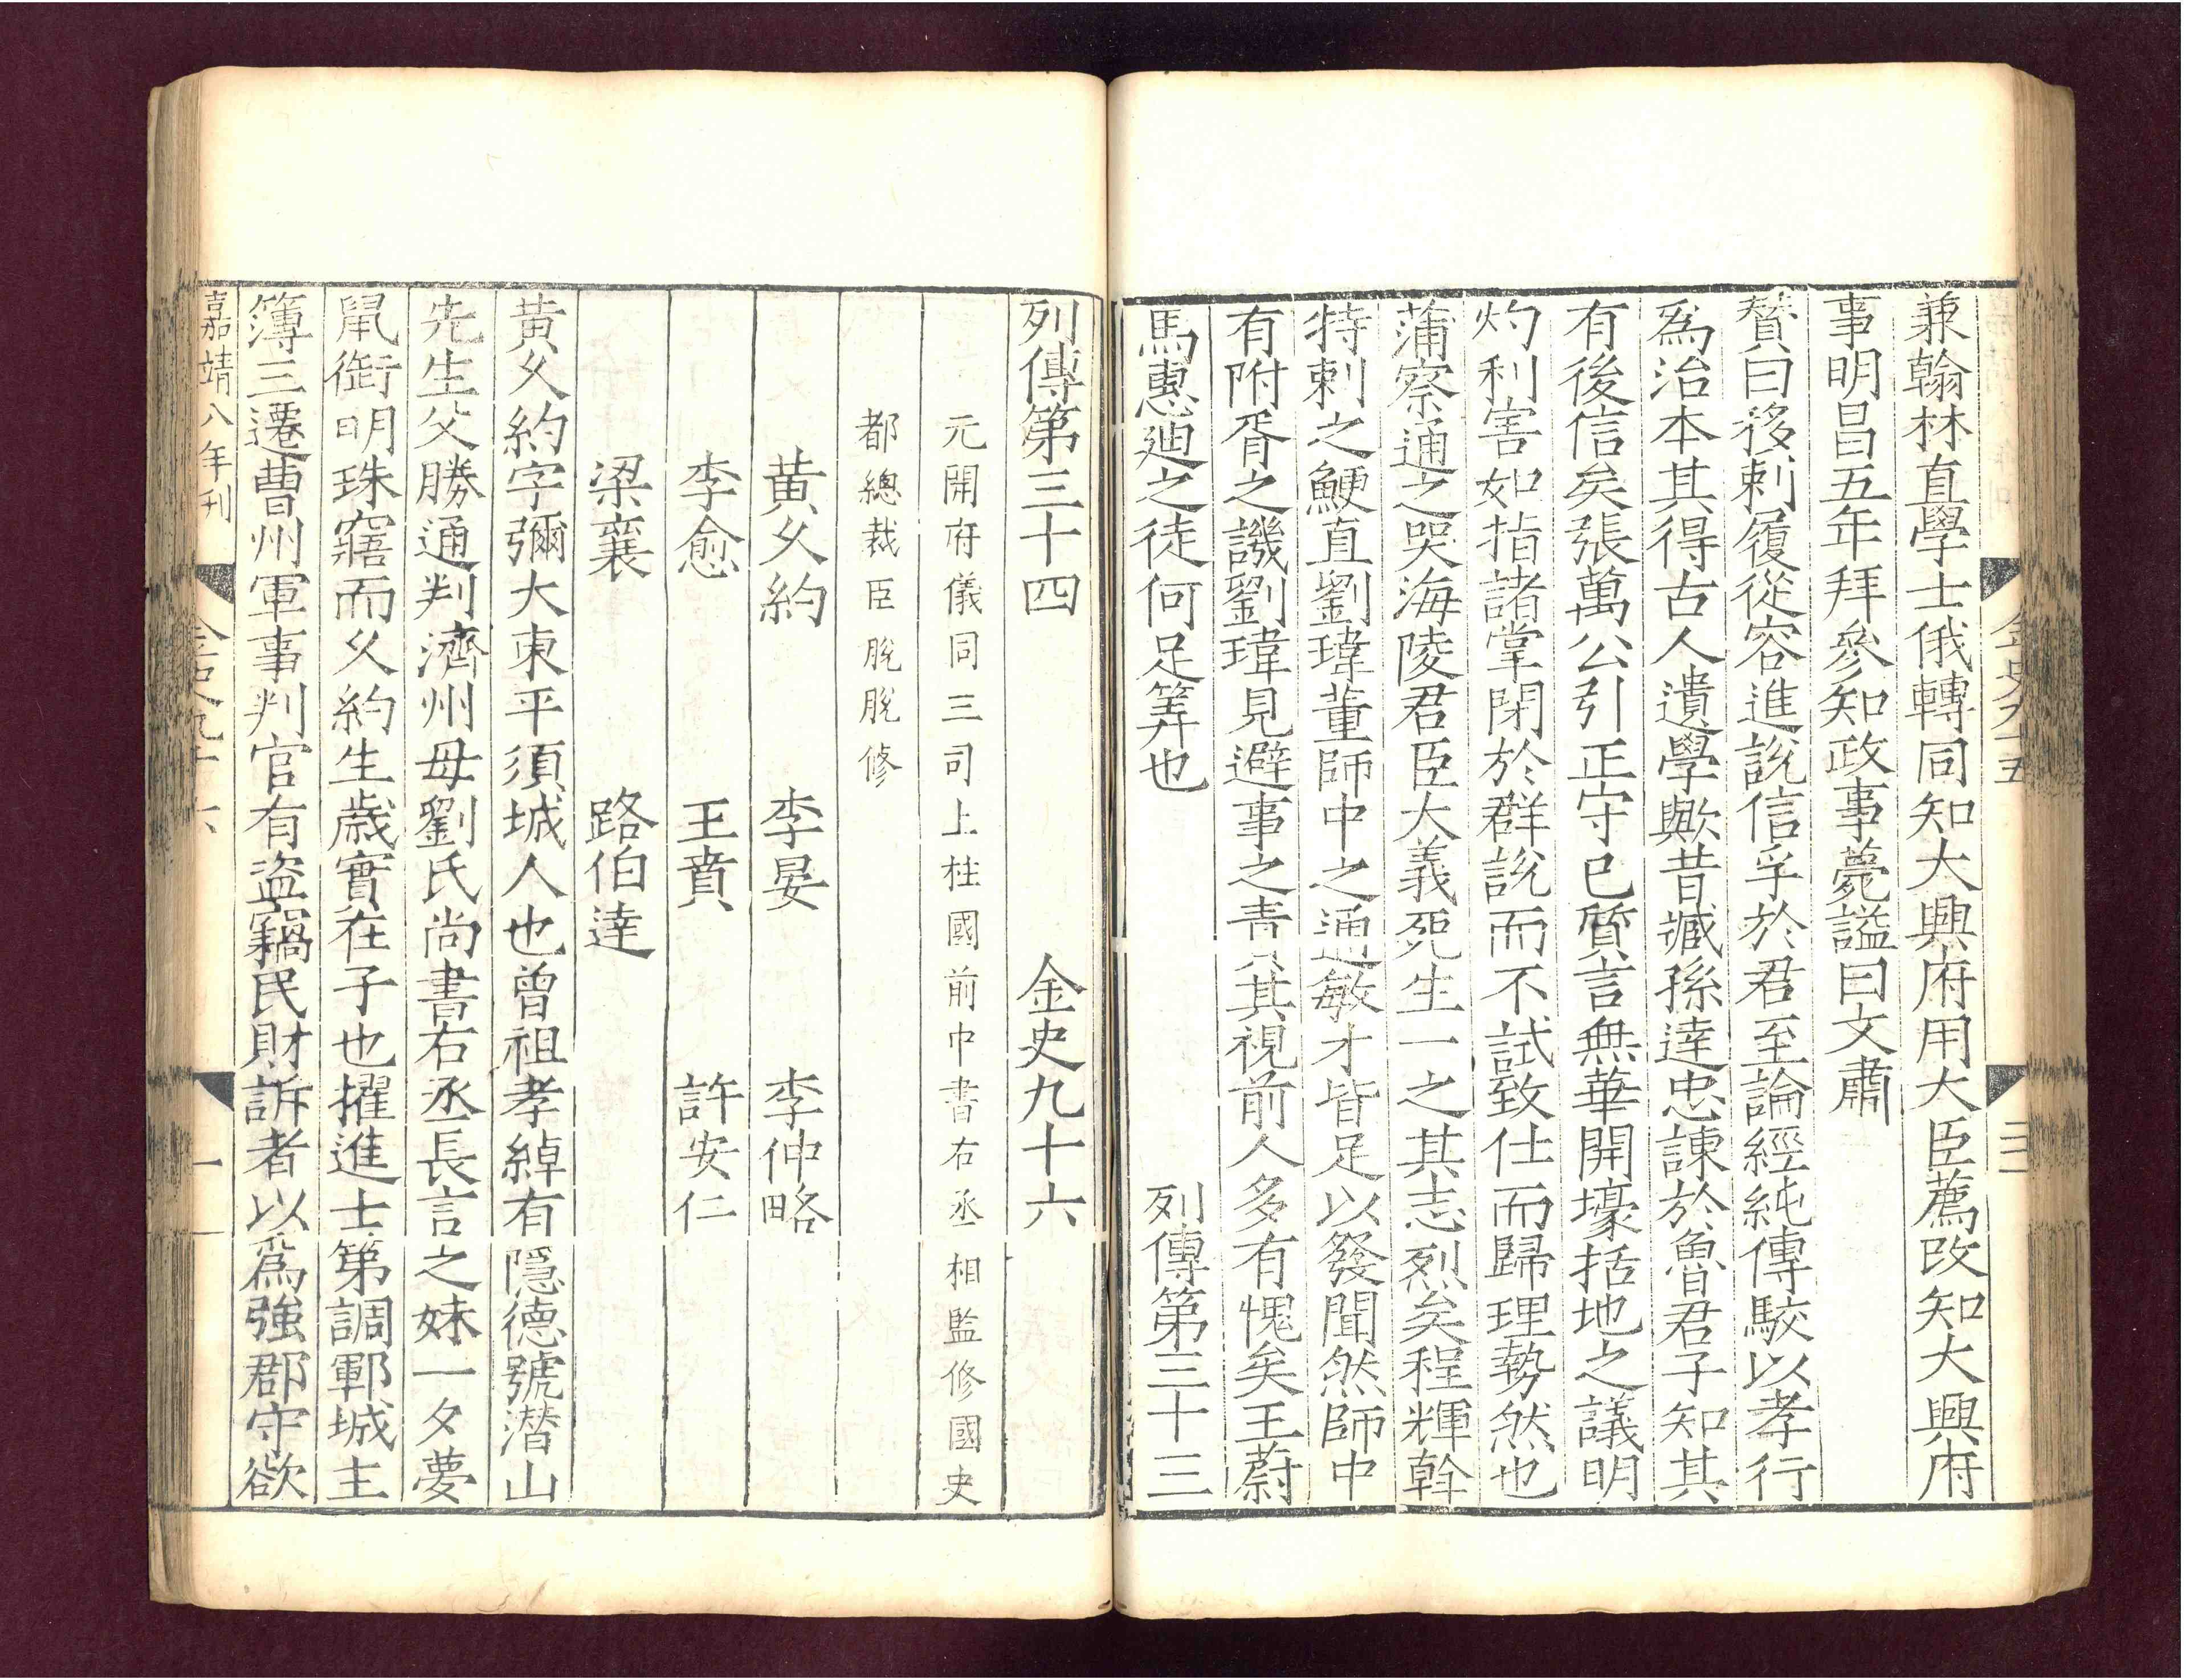 兼翰林直學士俄轉同知大興府用大臣薦改知大興府
事明昌五年拜參知政事薨謚曰文肅
贊曰移剌履從容進說信孚於君至論經純傳駮以孝行
爲治本其得古人遺學歟昔臧孫達忠諫於魯君子知其
有後信矣張萬公引正守巳質言無華開壕括地之議明
灼利害如指諸掌閉於群說而不試致仕而歸理勢然也
蒲察通之哭海陵君臣大義死生一之其志烈矣程輝幹
特剌之鯁直劉瑋董師中之通敏才皆足以發聞然師中
有附胥之譏劉瑋見避事之責其視前人多有愧矣王蔚
馬惠廸之徒何足筭也
列傳第三十三
金史九十五
列傳第三十四 金史九十六
元開府儀同三司上柱國前中書右丞相監修國史
都總裁臣脫脫修
黃久約 李晏 李仲略
李愈 王賁 許安仁
梁襄 路伯達
黃久約字彌大東平須城人也曾祖孝綽有隱德號潛山
先生父勝通判濟州母劉氏尚書右丞長言之妹一夕夢
鼠銜明珠寤而久約生歲實在子也擢進士第調鄆城主
簿三遷曹州軍事判官有盜竊民財訴者以爲強郡守欲
嘉靖八年刊
金史九十六
一